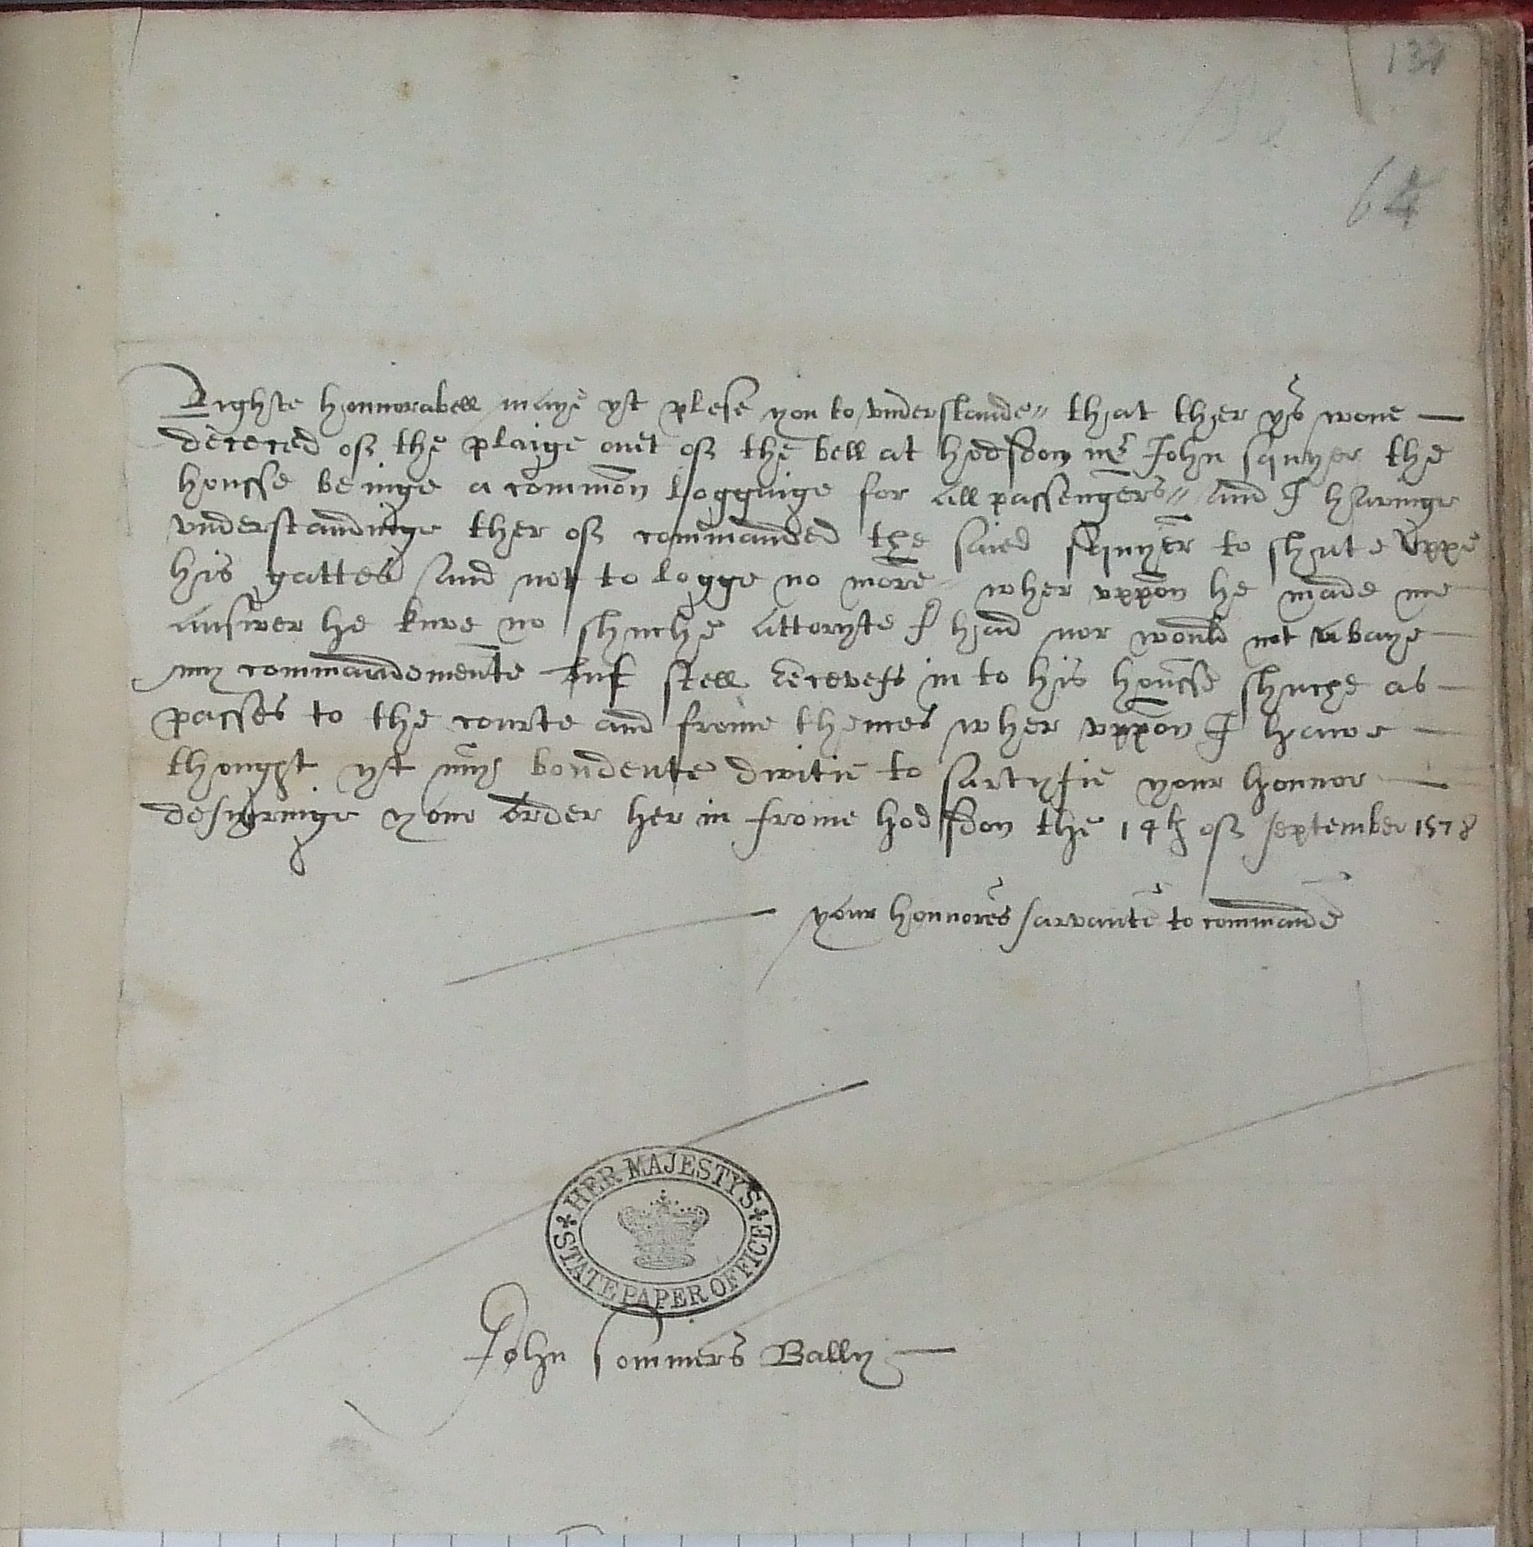 137
64
Righte honnorabell maye yt plese you to vnderstande" that ther ys wone
dececed of the plaige ovet of the bell at hodsdon mr John sqnyer the
housse beinge a common loggnige for all passengers" And I havinge
vnderstandinge ther of commanded the saied sqnyer to shute vppe
his gattes And not to logge no more wher vppon he made me
answer he knwe no shuche Attoryte I had nor would not abaye
my commandemente but stell receves in to his housse shuche as
passes to the courte and frome thences wher vppon I have
thought yt my bondente dwitie to sartyfie your honnor
desyringe your order her in frome hodsdon the 14th of september 1578
your honnores sarvante to commande
HER MAJESTY'S
STATE PAPER OFFICE
John Sommers Bally